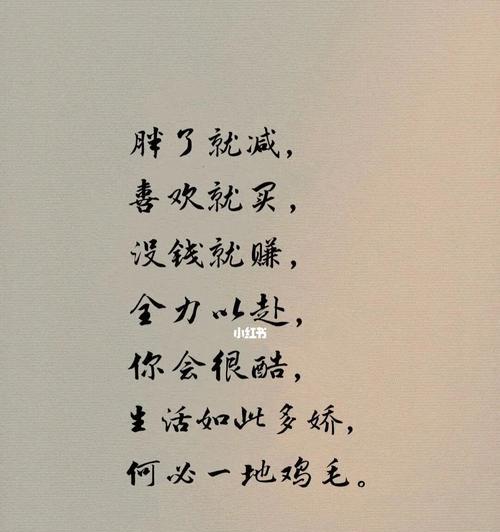 胖了就减，
喜欢就买，
没钱就赚，
全力以赴，
小红书
你会很酷，
生活如此多娇，
何必一地鸡毛。